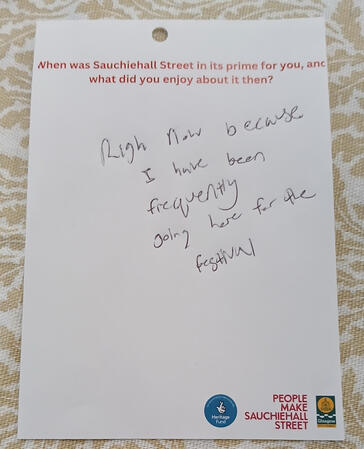 When was Sauchiehall Street in its prime for you, and
what did you enjoy about it then?
Righ Now because
I have been
frequently
going here for the
festival
Heritage
Fund
PEOPLE
MAKE
SAUCHIEHALL
STREET
Glasgow